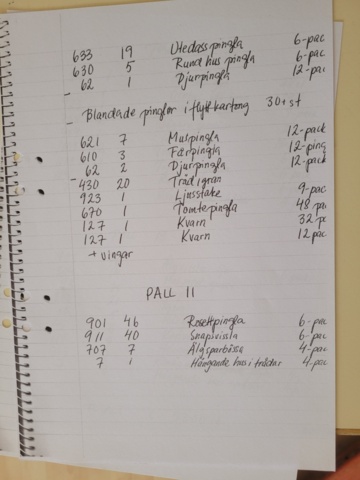 633 19 Utedasspingla 6-pac
630 5 Rund hus pingla 6-pac
62 1 Djurpingla 12-pac
Blandade pinglor i flyttkartong 30+st
621 7 Mulpingla 12-pack
610 3 Fårpingla 12-ping
62 2 Djurpingla 12-pack
430 20 Träd i gran
923 1 Ljusstake 9-pac
670 1 Tomtepingla 48 pa
127 1 Kvarn 32 p
127 1 Kvarn 12 pac
+ vingar
PALL 11
901 46 Rosettpingla 6-pac
911 40 Snapsvissla 6-pac
707 7 Älgsparbössa 4-pac
7 1 Hängande hus i trådar 4-pac